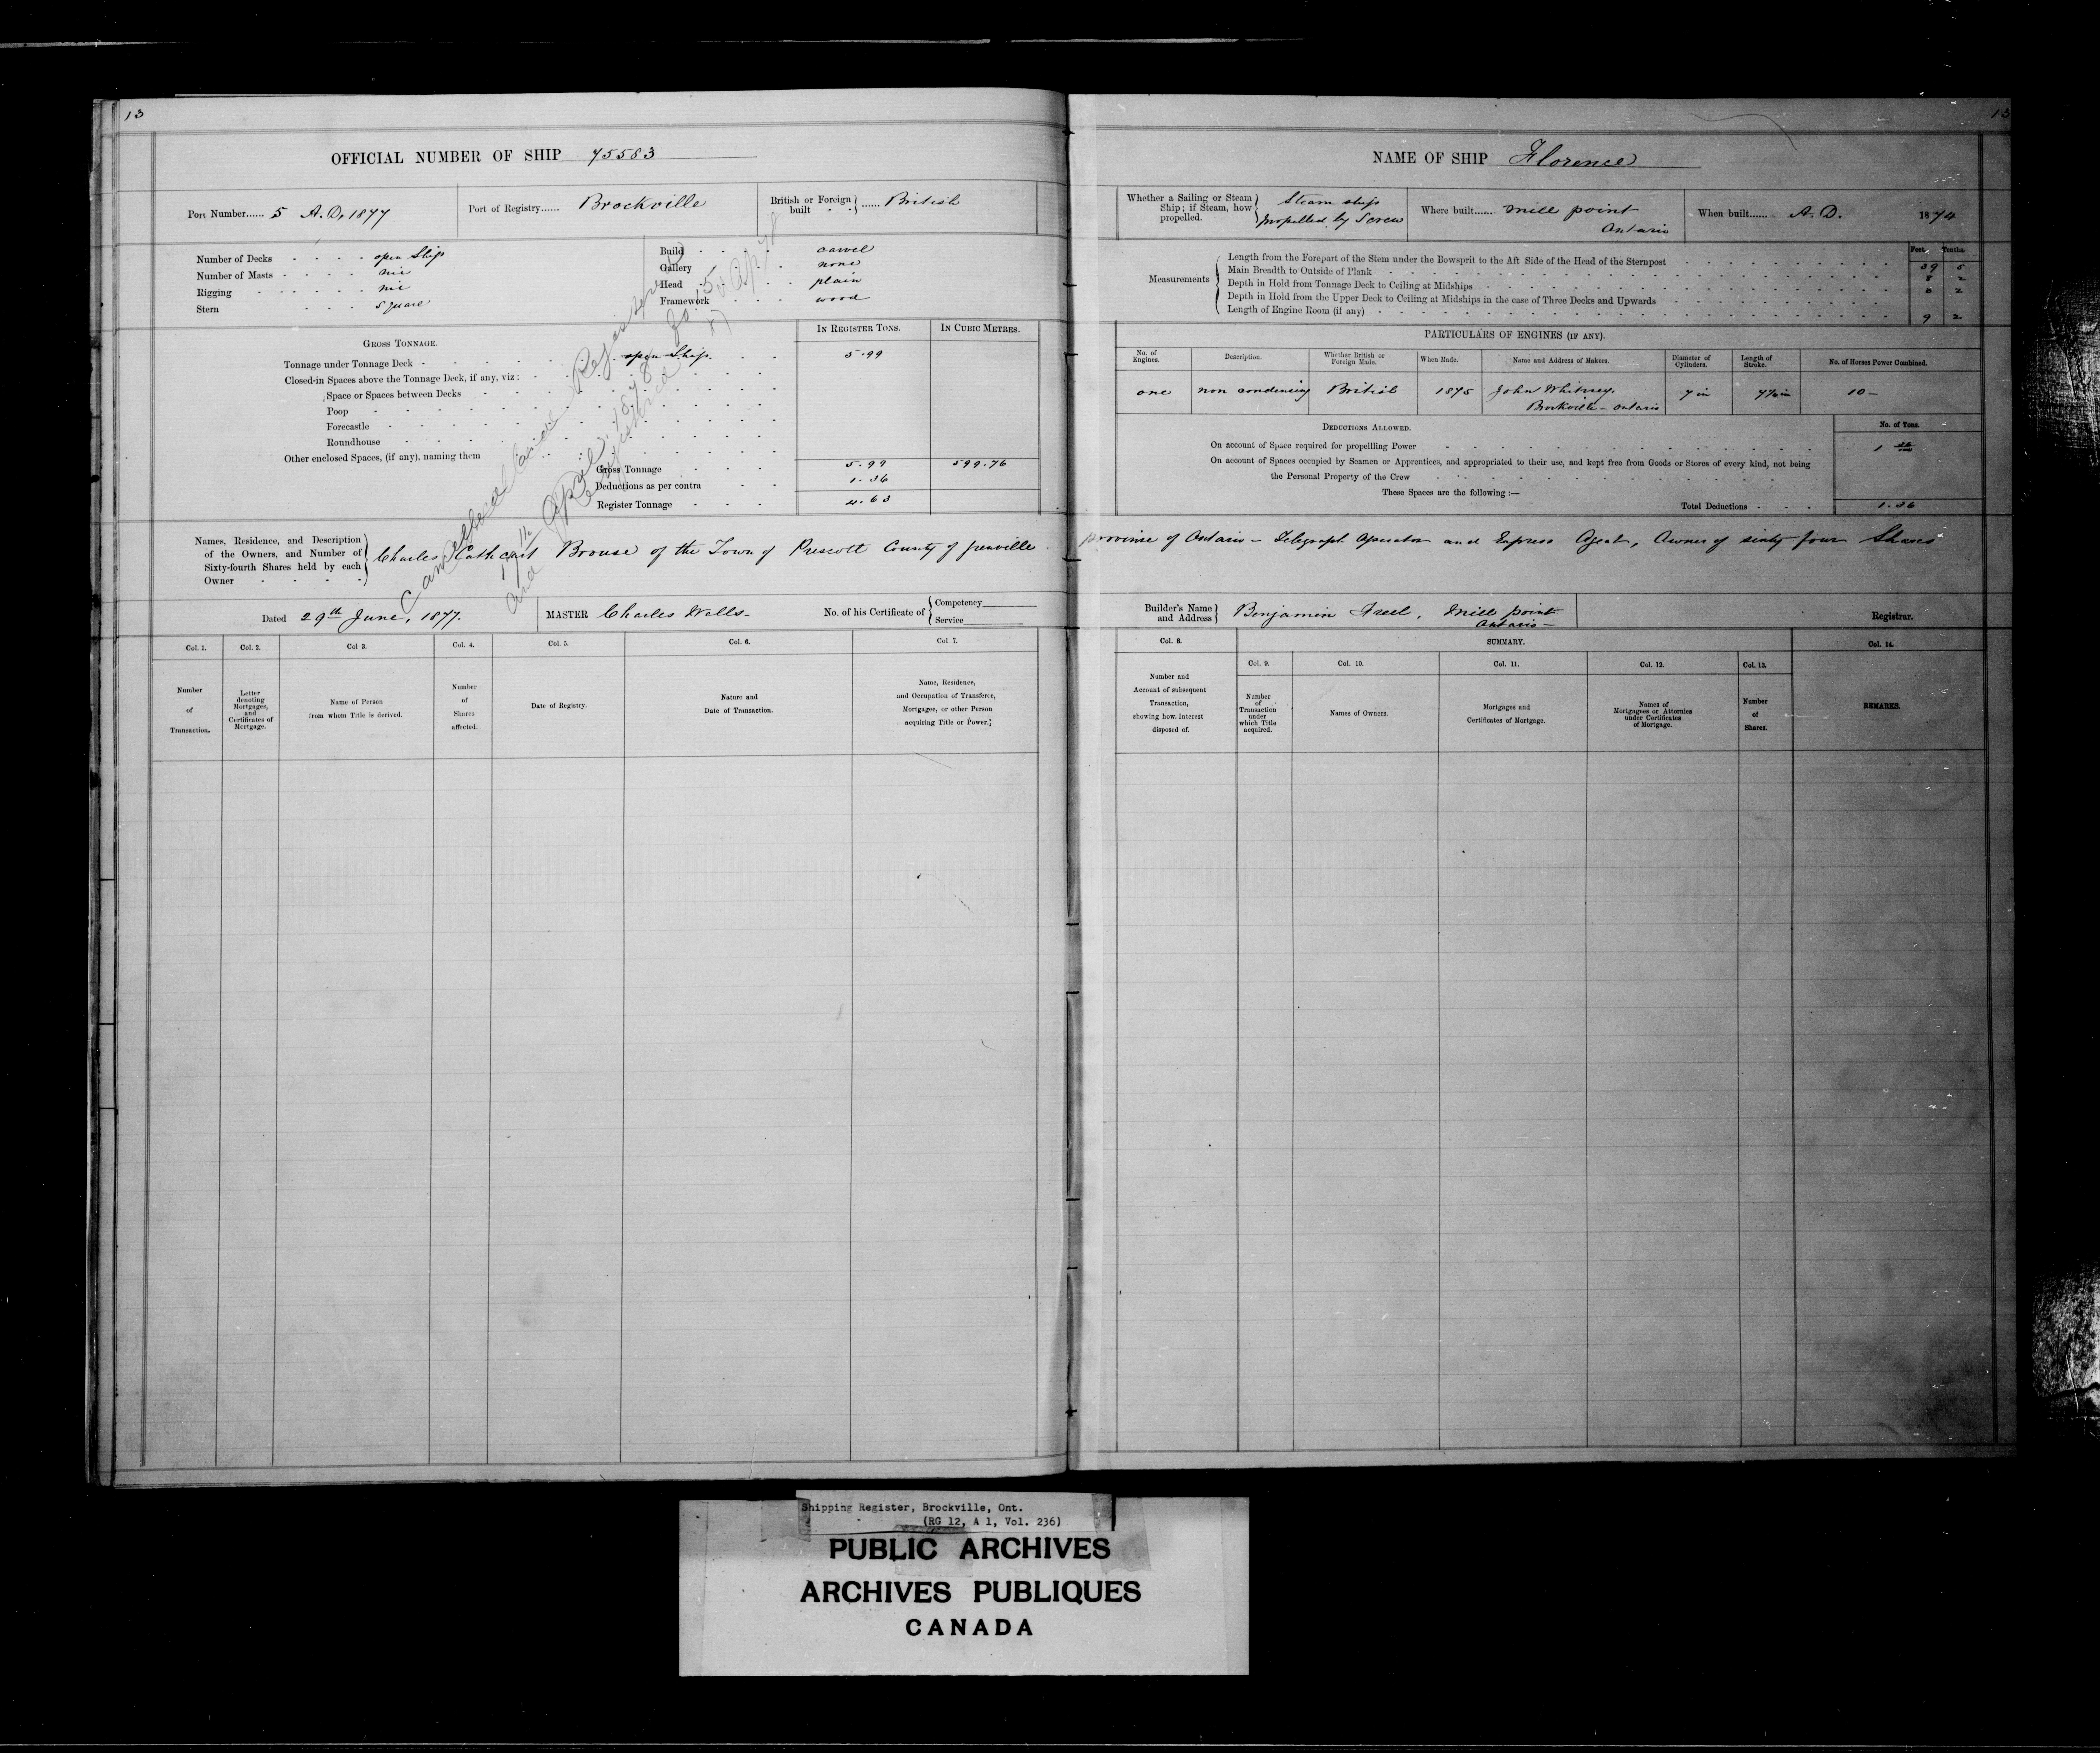 13
OFFICIAL NUMBER OF SHIP 75583
Port Number...... 5 A.D. 1877
Port of Registry...... Brockville
British or Foreign built - - } ...... British
Number of Decks - - - - open Ship
Number of Masts - - - - nil
Rigging - - - - - - nil
Stern - - - square
Build - - - - carvel
Gallery - - - none
Head - - - - plain
Framework - - - wood
GROSS TONNAGE.
IN REGISTER TONS.
IN CUBIC METRES.
Tonnage under Tonnage Deck - - open Ship. - - 5.99
Closed-in Spaces above the Tonnage Deck, if any, viz:
Space or Spaces between Decks
Poop
Forecastle
Roundhouse
Other enclosed Spaces, (if any), naming them
Gross Tonnage - - - 5.99 599.76
Deductions as per contra - - 1.36
Register Tonnage - - - 4.63
Cancelled and Register
17th April 1878
and Registered
Names, Residence, and Description
of the Owners, and Number of
Sixty-fourth Shares held by each
Owner - - - -
Charles Cathcart Brouse of the Town of Prescott County of Grenville
Dated 29th June, 1877.
MASTER Charles Wells-
No. of his Certificate of { Competency
Service
Col. 1. Col. 2. Col 3. Col. 4. Col. 5. Col. 6. Col 7.
Number of Transaction.
Letter denoting Mortgages, and Certificates of Mortgage.
Name of Person from whom Title is derived.
Number of Shares affected.
Date of Registry.
Nature and Date of Transaction.
Name, Residence, and Occupation of Transferee, Mortgagee, or other Person acquiring Title or Power.
13
NAME OF SHIP Florence
Whether a Sailing or Steam Ship; if Steam, how propelled. } Steam ship propelled by Screw
Where built...... Mill point Ontario
When built...... A.D. 1874
Measurements
Feet. Tenths.
Length from the Forepart of the Stem under the Bowsprit to the Aft Side of the Head of the Sternpost 39 5
Main Breadth to Outside of Plank 8 2
Depth in Hold from Tonnage Deck to Ceiling at Midships 2
Depth in Hold from the Upper Deck to Ceiling at Midships in the case of Three Decks and Upwards
Length of Engine Room (if any) 9 2
PARTICULARS OF ENGINES (IF ANY).
No. of Engines. Description. Whether British or Foreign Made. When Made. Name and Address of Makers. Diameter of Cylinders. Length of Stroke. No. of Horses Power Combined.
one non condensing British 1875 John Whitney, Brockville - Ontario 7 in 7½ in 10 -
DEDUCTIONS ALLOWED.
No. of Tons.
On account of Space required for propellling Power 1 36/100
On account of Spaces occupied by Seamen or Apprentices, and appropriated to their use, and kept free from Goods or Stores of every kind, not being
the Personal Property of the Crew
These Spaces are the following :—
Total Deductions - - - 1.36
province of Ontario - Telegraph Operator and Express Agent, Owner of sixty four Shares
Builder's Name and Address } Benjamin Freel, Mill point Ontario -
Registrar.
Col. 8. SUMMARY. Col. 14.
Col. 9. Col. 10. Col. 11. Col. 12. Col. 13.
Number and Account of subsequent Transaction, showing how Interest disposed of.
Number of Transaction under which Title acquired.
Names of Owners.
Mortgages and Certificates of Mortgage.
Names of Mortgagees or Attornies under Certificates of Mortgage.
Number of Shares.
REMARKS.
Shipping Register, Brockville, Ont.
(RG 12, A 1, Vol. 236)
PUBLIC ARCHIVES
ARCHIVES PUBLIQUES
CANADA